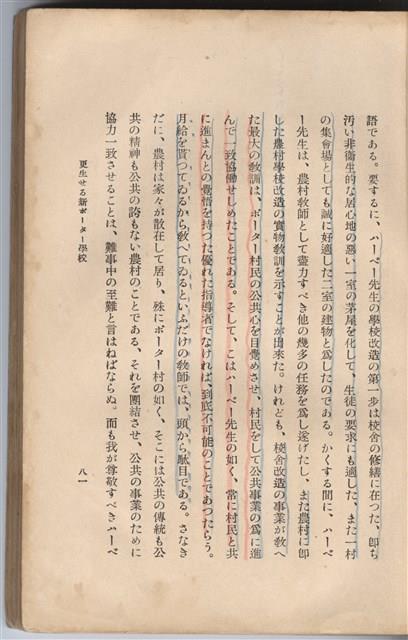 語である。要するに、ハーベー先生の學校改造の第一歩は校舍の修繕に在つた、卽ち
汚い非衞生的な居心地の惡い一室の茅屋を化して、生徒の要求にも適した、また一村
の集會場としても誠に好適した二室の建物と爲したのである。かくする間に、ハーベ
ー先生は、農村敎師として盡力すべき他の幾多の任務を爲し遂げたし、また農村に卽
した農村學校改造の實物敎訓を示すことが出來た。けれども、校舍改造の事業が敎へ
た最大の敎訓は、ポーター村民の公共心を目覺めさせ、村民をして公共事業の爲に進
んで一致協働せしめたことである。そして、こはハーベー先生の如く、常に村民と共
に進まんとの覺悟を持つた優れた指導者でなければ、到底不可能のことであつたらう。
月給を貰つてゐるから敎へてゐるといふだけの敎師では、頭から駄目である。さなき
だに、農村は家々が散在して居り、殊にポーター村の如く、そこには公共の傳統も公
共の精神も公共の誇もない農村のことである、それを團結させ、公共の事業のために
協力一致させることは、難事中の至難と言はねばならぬ。而も我が尊敬すべきハーベ
更生せる新ポーター學校
八一